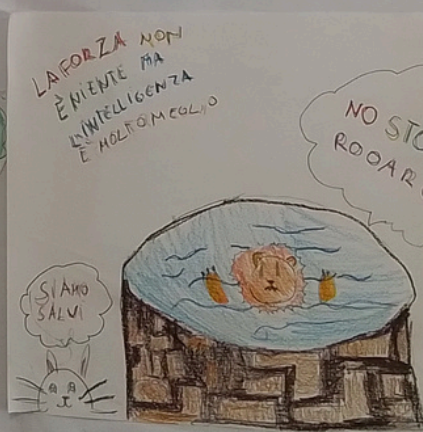 LA FORZA NON
È NIENTE MA
L'INTELLIGENZA
È MOLTO MEGLIO
NO STO
ROOAR
SIAMO
SALVI